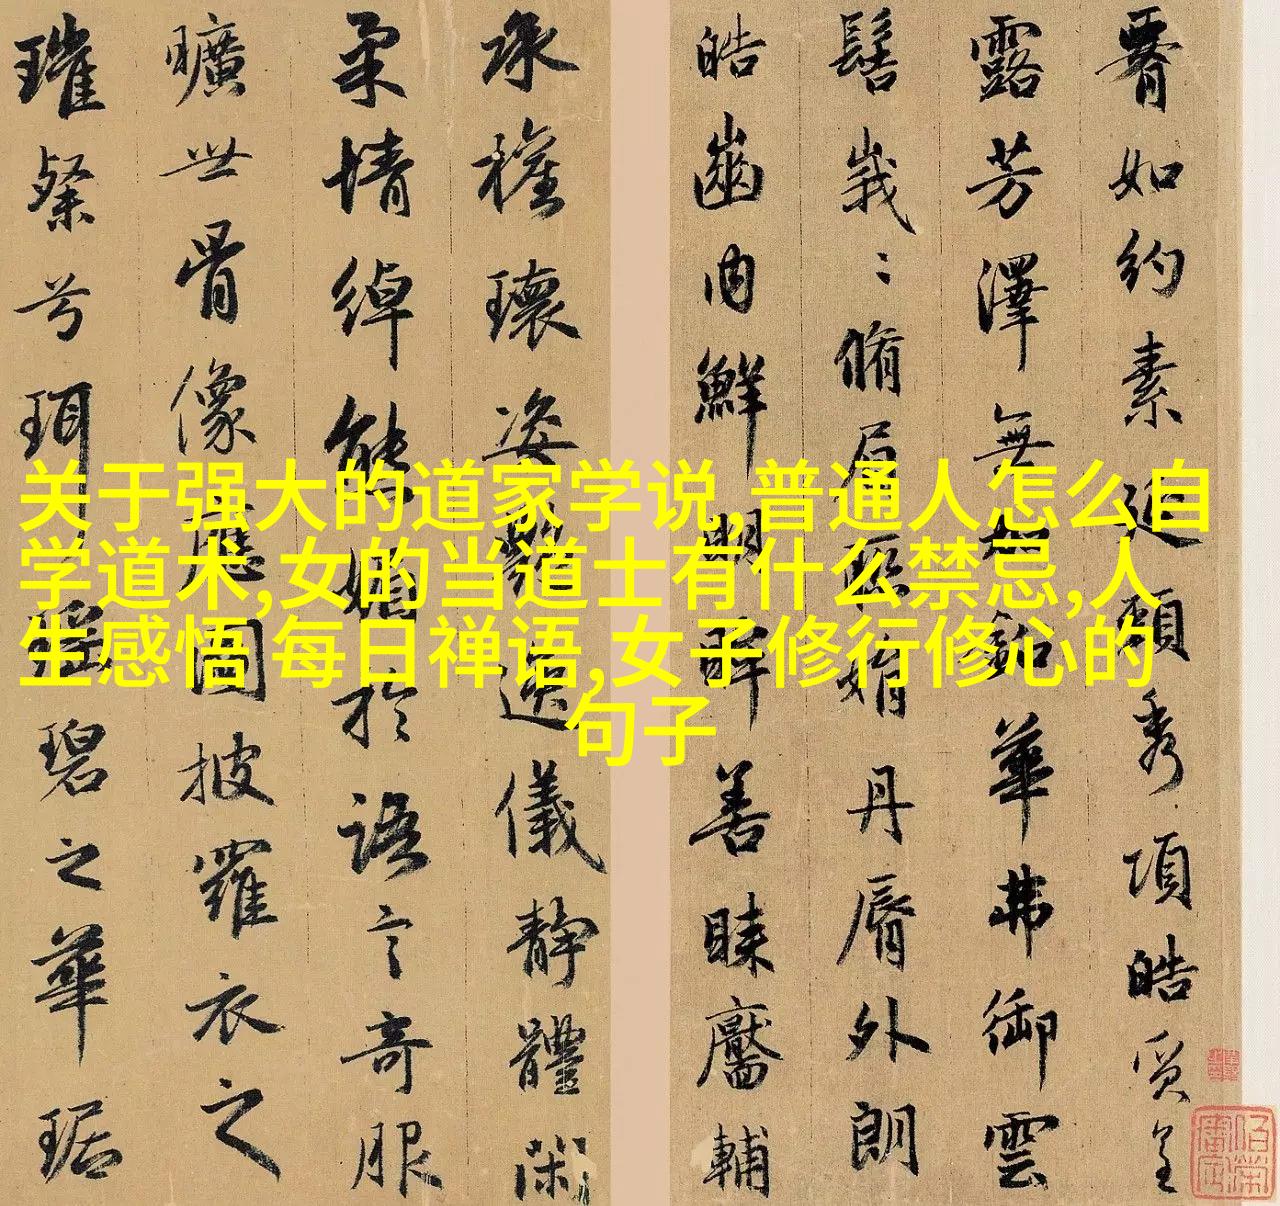 腰如約素延頸秀項皓質呈
露芳澤無加鉛華弗御雲
髻峩〻脩眉聯娟丹脣外朗
皓齒内鮮明眸善睞靨輔
承權瓌姿豔逸儀靜體閑
柔情綽態媚於語言奇服
曠世骨像應圖披羅衣之
璀粲兮珥瑤碧之華琚
关于强大的道家学说,普通人怎么自
学道术,女的当道士有什么禁忌,人
生感悟 每日禅语,女子修行修心的
句子